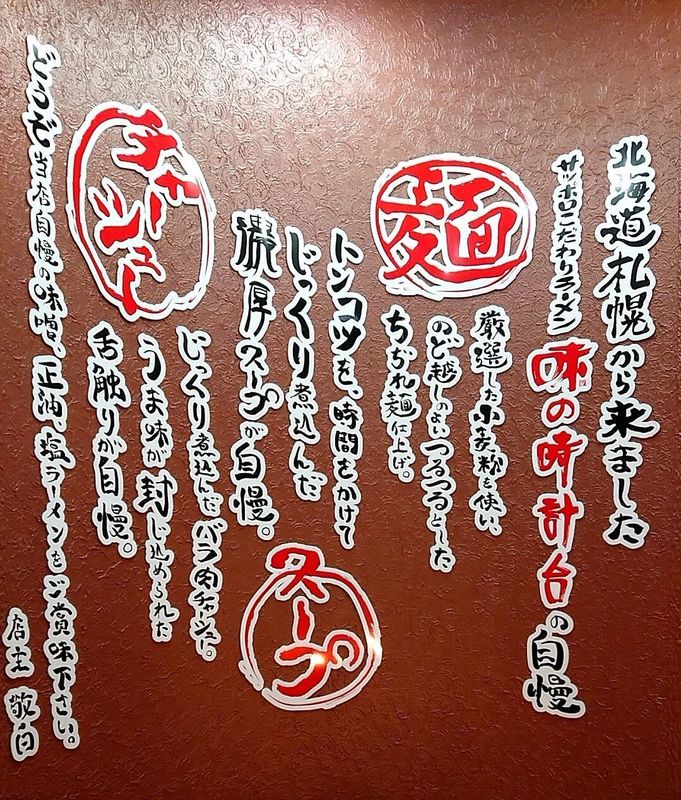 北海道札幌から来ました
サッポロこだわりラーメン 味の時計台の自慢
麺
厳選した小麦粉を使い、
のど越しのよいつるつるとした
ちぢれ麺仕上げ。
スープ
トンコツを、時間をかけて
じっくり煮込んだ
濃厚スープが自慢。
チャーシュー
じっくり煮込んだバラ肉チャーシュー。
うま味が封じ込められた
舌触りが自慢。
どうぞ当店自慢の味噌、正油、塩ラーメンをご賞味下さい。
店主 敬白